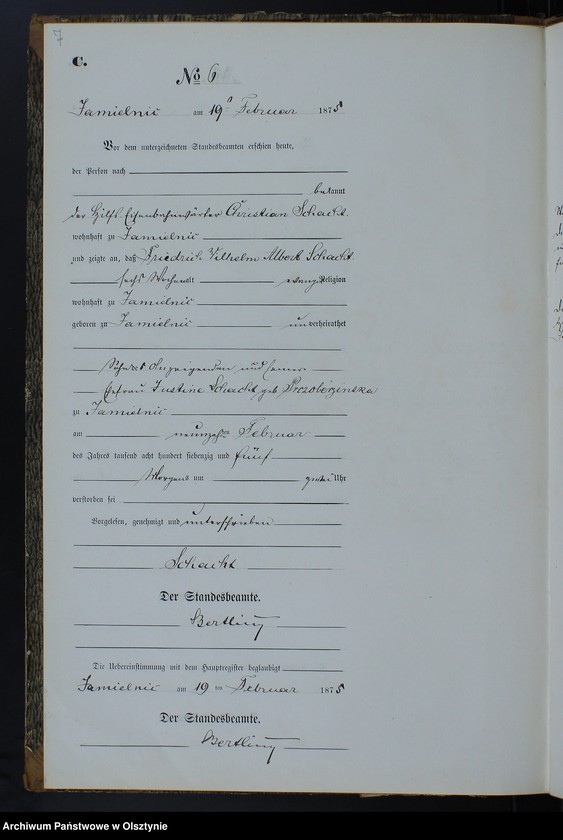 7
C.
No 6
Jamielnic am 19n Februar 1875
Vor dem unterzeichneten Standesbeamten erschien heute,
der Person nach
bekannt
der Hilfs-Eisenbahnwärter Christian Schacht
wohnhaft zu Jamielnic
und zeigte an, daß Friedrich Wilhelm Albert Schacht
sechs Wochen alt evang. Religion
wohnhaft zu Jamielnic
geboren zu Jamielnic unverheirathet
Sohn des Anzeigenden und seiner
Ehefrau Justine Schacht geb.
zu Jamielnic
am neunzehnten Februar
des Jahres tausend acht hundert siebenzig und fünf
Morgens um Uhr
verstorben sei
Vorgelesen, genehmigt und unterschrieben
Schacht
Der Standesbeamte.
Bertling
Die Uebereinstimmung mit dem Hauptregister beglaubigt
Jamielnic am 19 ten Februar 1875
Der Standesbeamte.
Bertling
Archiwum Państwowe w Olsztynie